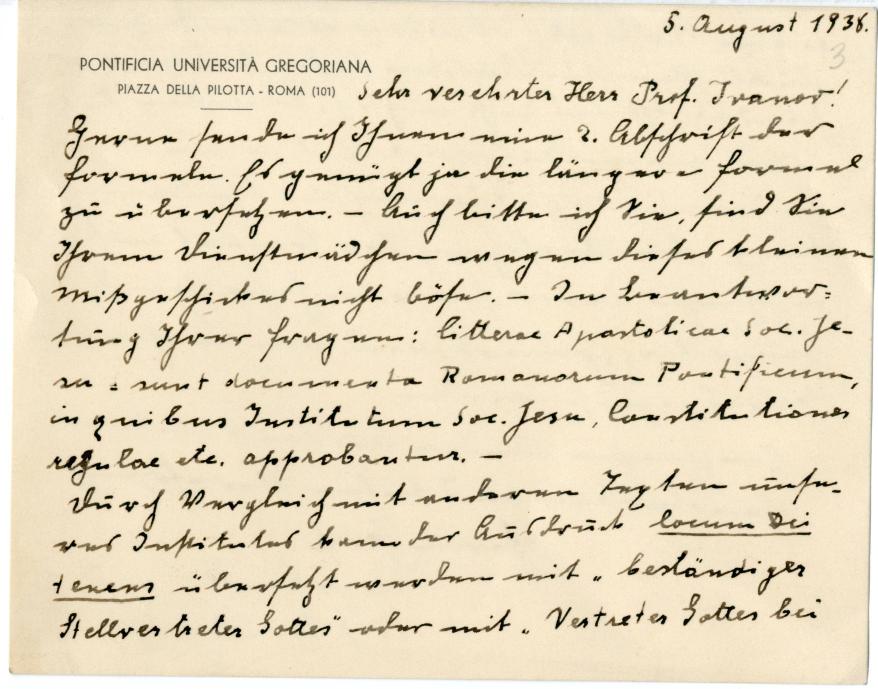 5. August 1936.
3
PONTIFICIA UNIVERSITÀ GREGORIANA
PIAZZA DELLA PILOTTA - ROMA (101)
Sehr verehrter Herr Prof. Ivanov!
Gerne sende ich Ihnen eine 2. Abschrift der
Formeln. Es genügt ja die längere Formel
zu übersetzen. – Auch bitte ich Sie, sind Sie
Ihrem Dienstmädchen wegen dieses kleinen
Mißgeschickes nicht böse. – In Beantwor-
tung Ihrer Fragen: litterae Apostolicae Soc. Je-
su = sunt documenta Romanorum Pontificum,
in quibus Institutum Soc. Jesu, Constitutiones
regulae etc. approbantur. –
Durch Vergleich mit anderen Texten unse-
res Institutes kann der Ausdruck locum Dei
tenens übersetzt werden mit „beständiger
Stellvertreter Gottes" oder mit „Vertreter Gottes bei